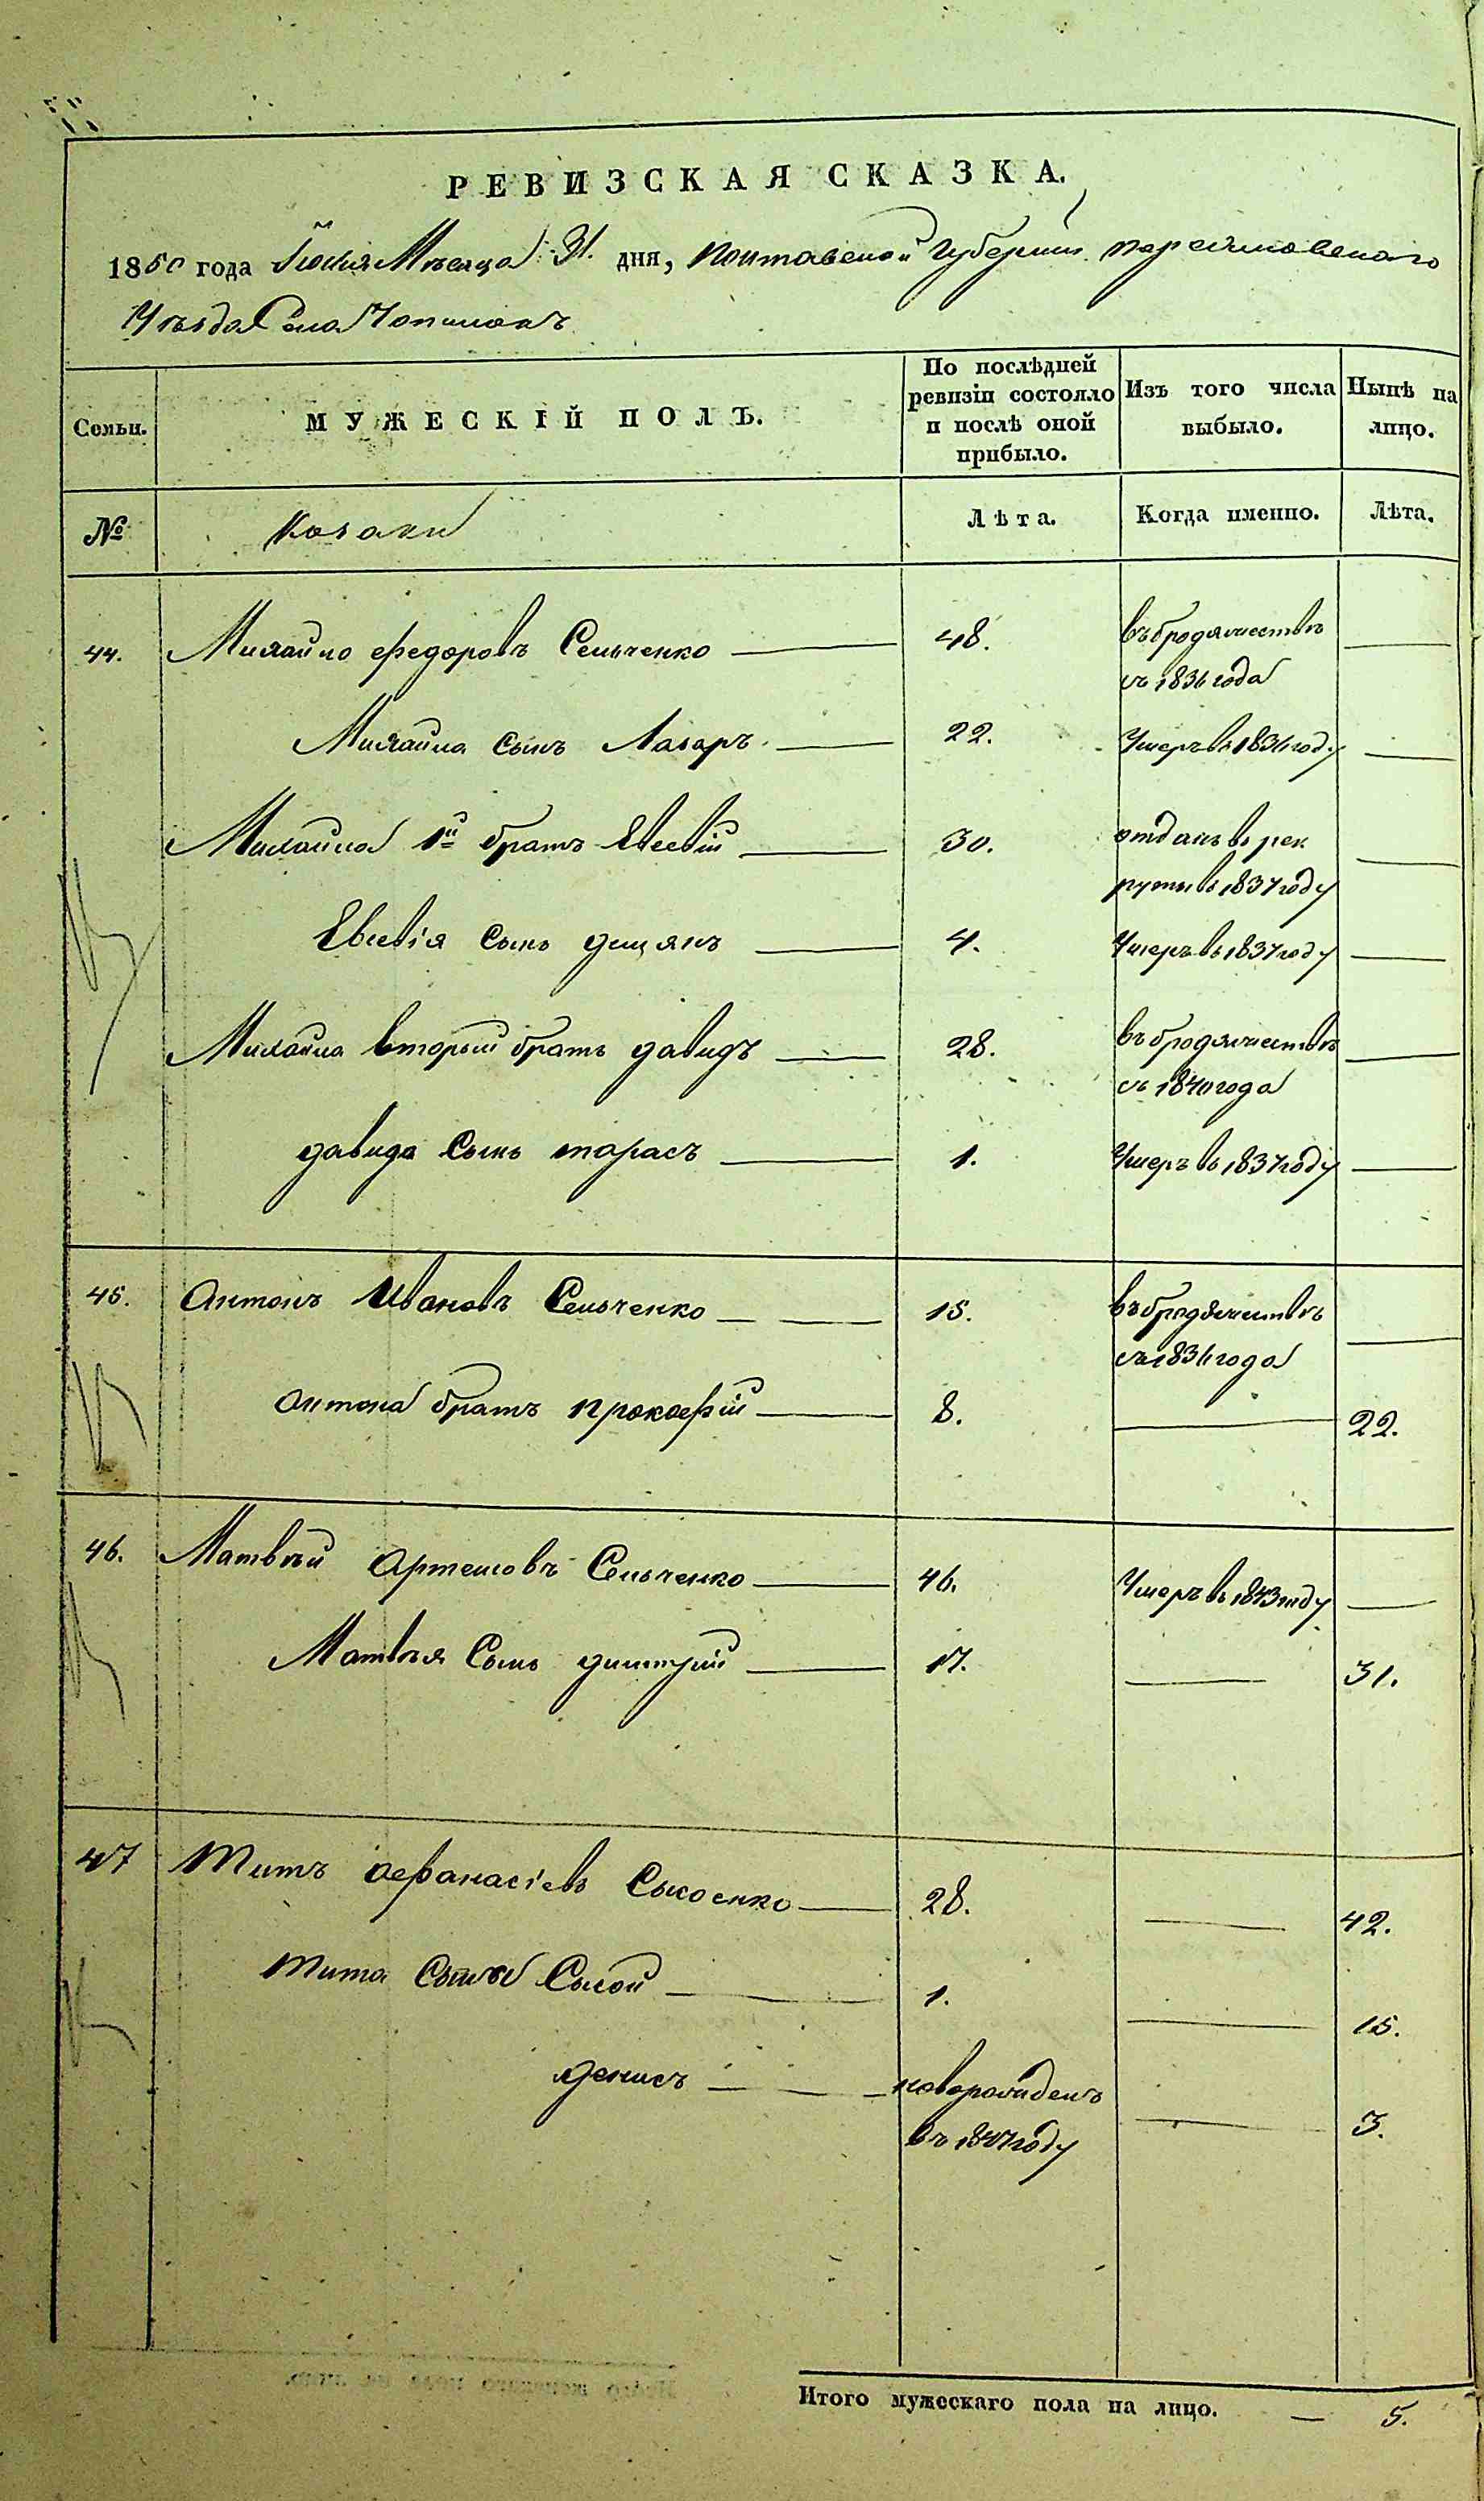 РЕВИЗСКАЯ СКАЗКА.
1850 года Июля Месяца 31. дня, Полтавской Губернии Переяславского
Уезда Села
Семьи. МУЖЕСКІЙ ПОЛЪ. По послѣдней ревизіи состояло и послѣ оной прибыло. Изъ того числа выбыло. Нынѣ на лицо.
№ Козаки Лѣта. Когда именно. Лѣта.
44. Михайло Федоровъ Семченко 48. въ бродяжествѣ
съ 1836 года
Михайла Сынъ Лазаръ 22. Умеръ в 1836 году
Михайла 1й братъ Евсевій 30. отданъ в рек
руты в 1837 году
Евсевія Сынъ Демянъ 4. Умеръ въ 1837 году
Михайла вторый братъ давидъ 28. въ бродяжествѣ
съ 1840 года
давида Сынъ тарасъ 1. Умеръ въ 1837 году
45. Антонъ Ивановъ Семченко 15. въ бродяжествѣ
съ 1836 года
Антона братъ прокофій 8. 22.
46. Матвѣй Артемовъ Семченко 46. Умеръ въ 1843 году
Матвѣя Сынъ димитрій 17. 31.
47 Титъ Афанасіевъ Сысоенко 28. 42.
Тита Сысой 1. 15.
денисъ новорожденъ 3.
въ 1847 году
Итого мужескаго пола на лицо. 5.